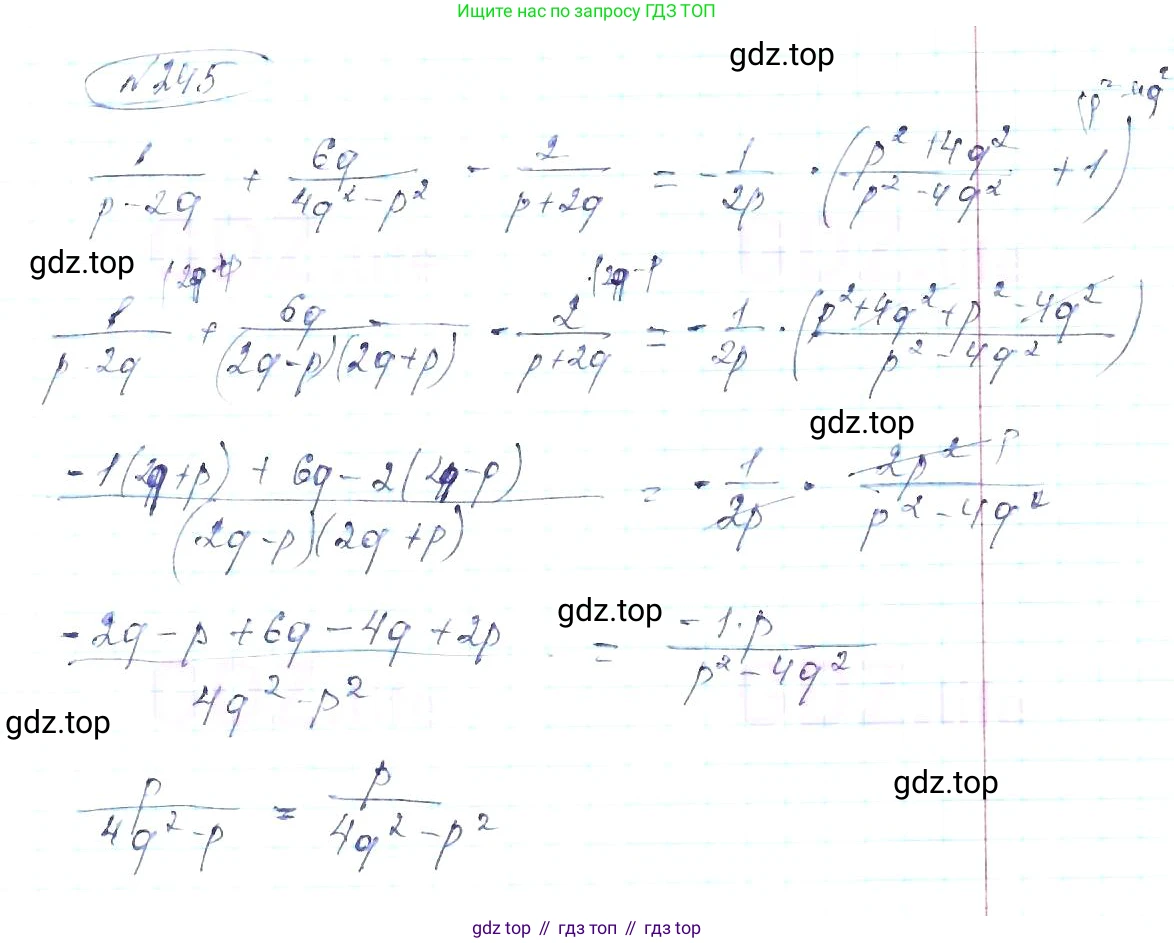 Ищите нас по запросу ГДЗ ТОП
gdz.top
№245
(p² - 4q²
1/(p-2q) + 6q/(4q²-p²) - 2/(p+2q) = -1/2p · ((p²+4q²)/(p²-4q²) + 1)
gdz.top
(2q+p (2q-p
1/(p-2q) + 6q/((2q-p)(2q+p)) - 2/(p+2q) = -1/2p · ((p²+4q²+p²-4q²)/(p²-4q²))
gdz.top
(-1(2q+p) + 6q - 2(2q-p))/((2q-p)(2q+p)) = -1/2p · 2p² p/(p²-4q²)
gdz.top
(-2q-p+6q-4q+2p)/(4q²-p²) = (-1·p)/(p²-4q²)
gdz.top
gdz.top
p/(4q²-p) = p/(4q²-p²)
gdz top // гдз топ // гдз top